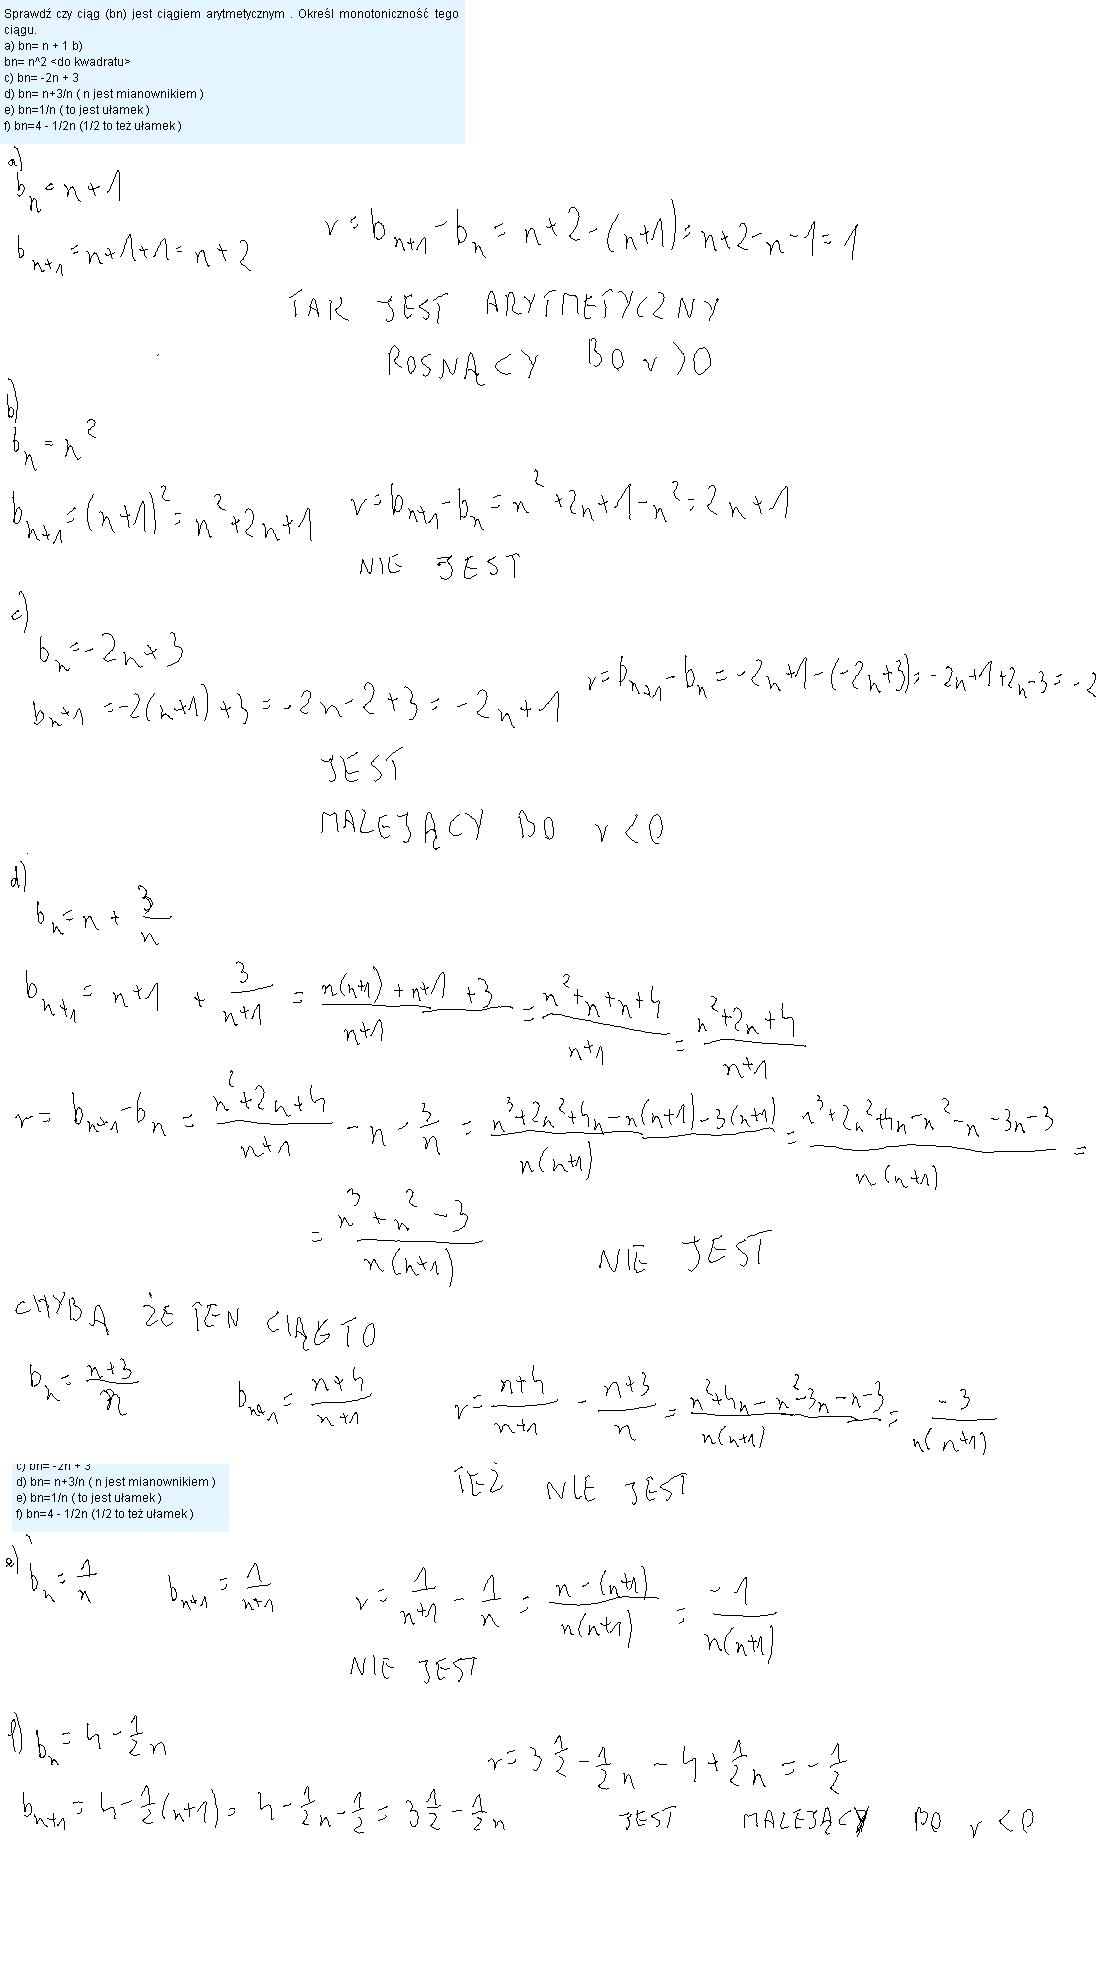 Sprawdź czy ciąg (bn) jest ciągiem arytmetycznym . Określ monotoniczność tego
ciągu.
a) bn= n + 1 b)
bn= n^2 <do kwadratu>
c) bn= -2n + 3
d) bn= n+3/n ( n jest mianownikiem )
e) bn=1/n ( to jest ułamek )
f) bn=4 - 1/2n (1/2 to też ułamek )
a)
b_n = n+1
b_{n+1} = n+1+1 = n+2    r = b_{n+1} - b_n = n+2-(n+1) = n+2-n-1 = 1
TAK JEST ARYTMETYCZNY
ROSNĄCY BO r>0
b)
b_n = n^2
b_{n+1} = (n+1)^2 = n^2+2n+1    r = b_{n+1} - b_n = n^2+2n+1-n^2 = 2n+1
NIE JEST
c)
b_n = -2n+3
b_{n+1} = -2(n+1)+3 = -2n-2+3 = -2n+1    r = b_{n+1} - b_n = -2n+1-(-2n+3) = -2n+1+2n-3 = -2
JEST
MALEJĄCY BO r<0
d)
b_n = n + 3/n
b_{n+1} = n+1 + 3/(n+1) = (n(n+1)+n+1+3)/(n+1) = (n^2+n+n+4)/(n+1) = (n^2+2n+4)/(n+1)
r = b_{n+1} - b_n = (n^2+2n+4)/(n+1) - n - 3/n = (n^3+2n^2+4n-n(n+1)-3(n+1))/(n(n+1)) = (n^3+2n^2+4n-n^2-n-3n-3)/(n(n+1)) =
= (n^3+n^2-3)/(n(n+1))    NIE JEST
CHYBA ŻE TEN CIĄG TO
b_n = (n+3)/n    b_{n+1} = (n+4)/(n+1)    r = (n+4)/(n+1) - (n+3)/n = (n^2+4n-n^2-3n-n-3)/(n(n+1)) = -3/(n(n+1))
TEŻ NIE JEST
c) bn= -2n + 3
d) bn= n+3/n ( n jest mianownikiem )
e) bn=1/n ( to jest ułamek )
f) bn=4 - 1/2n (1/2 to też ułamek )
e) b_n = 1/n    b_{n+1} = 1/(n+1)    r = 1/(n+1) - 1/n = (n-(n+1))/(n(n+1)) = -1/(n(n+1))
NIE JEST
f) b_n = 4 - 1/2 n
b_{n+1} = 4 - 1/2(n+1) = 4 - 1/2 n - 1/2 = 3 1/2 - 1/2 n    r = 3 1/2 - 1/2 n - 4 + 1/2 n = -1/2
JEST MALEJĄCY BO r<0